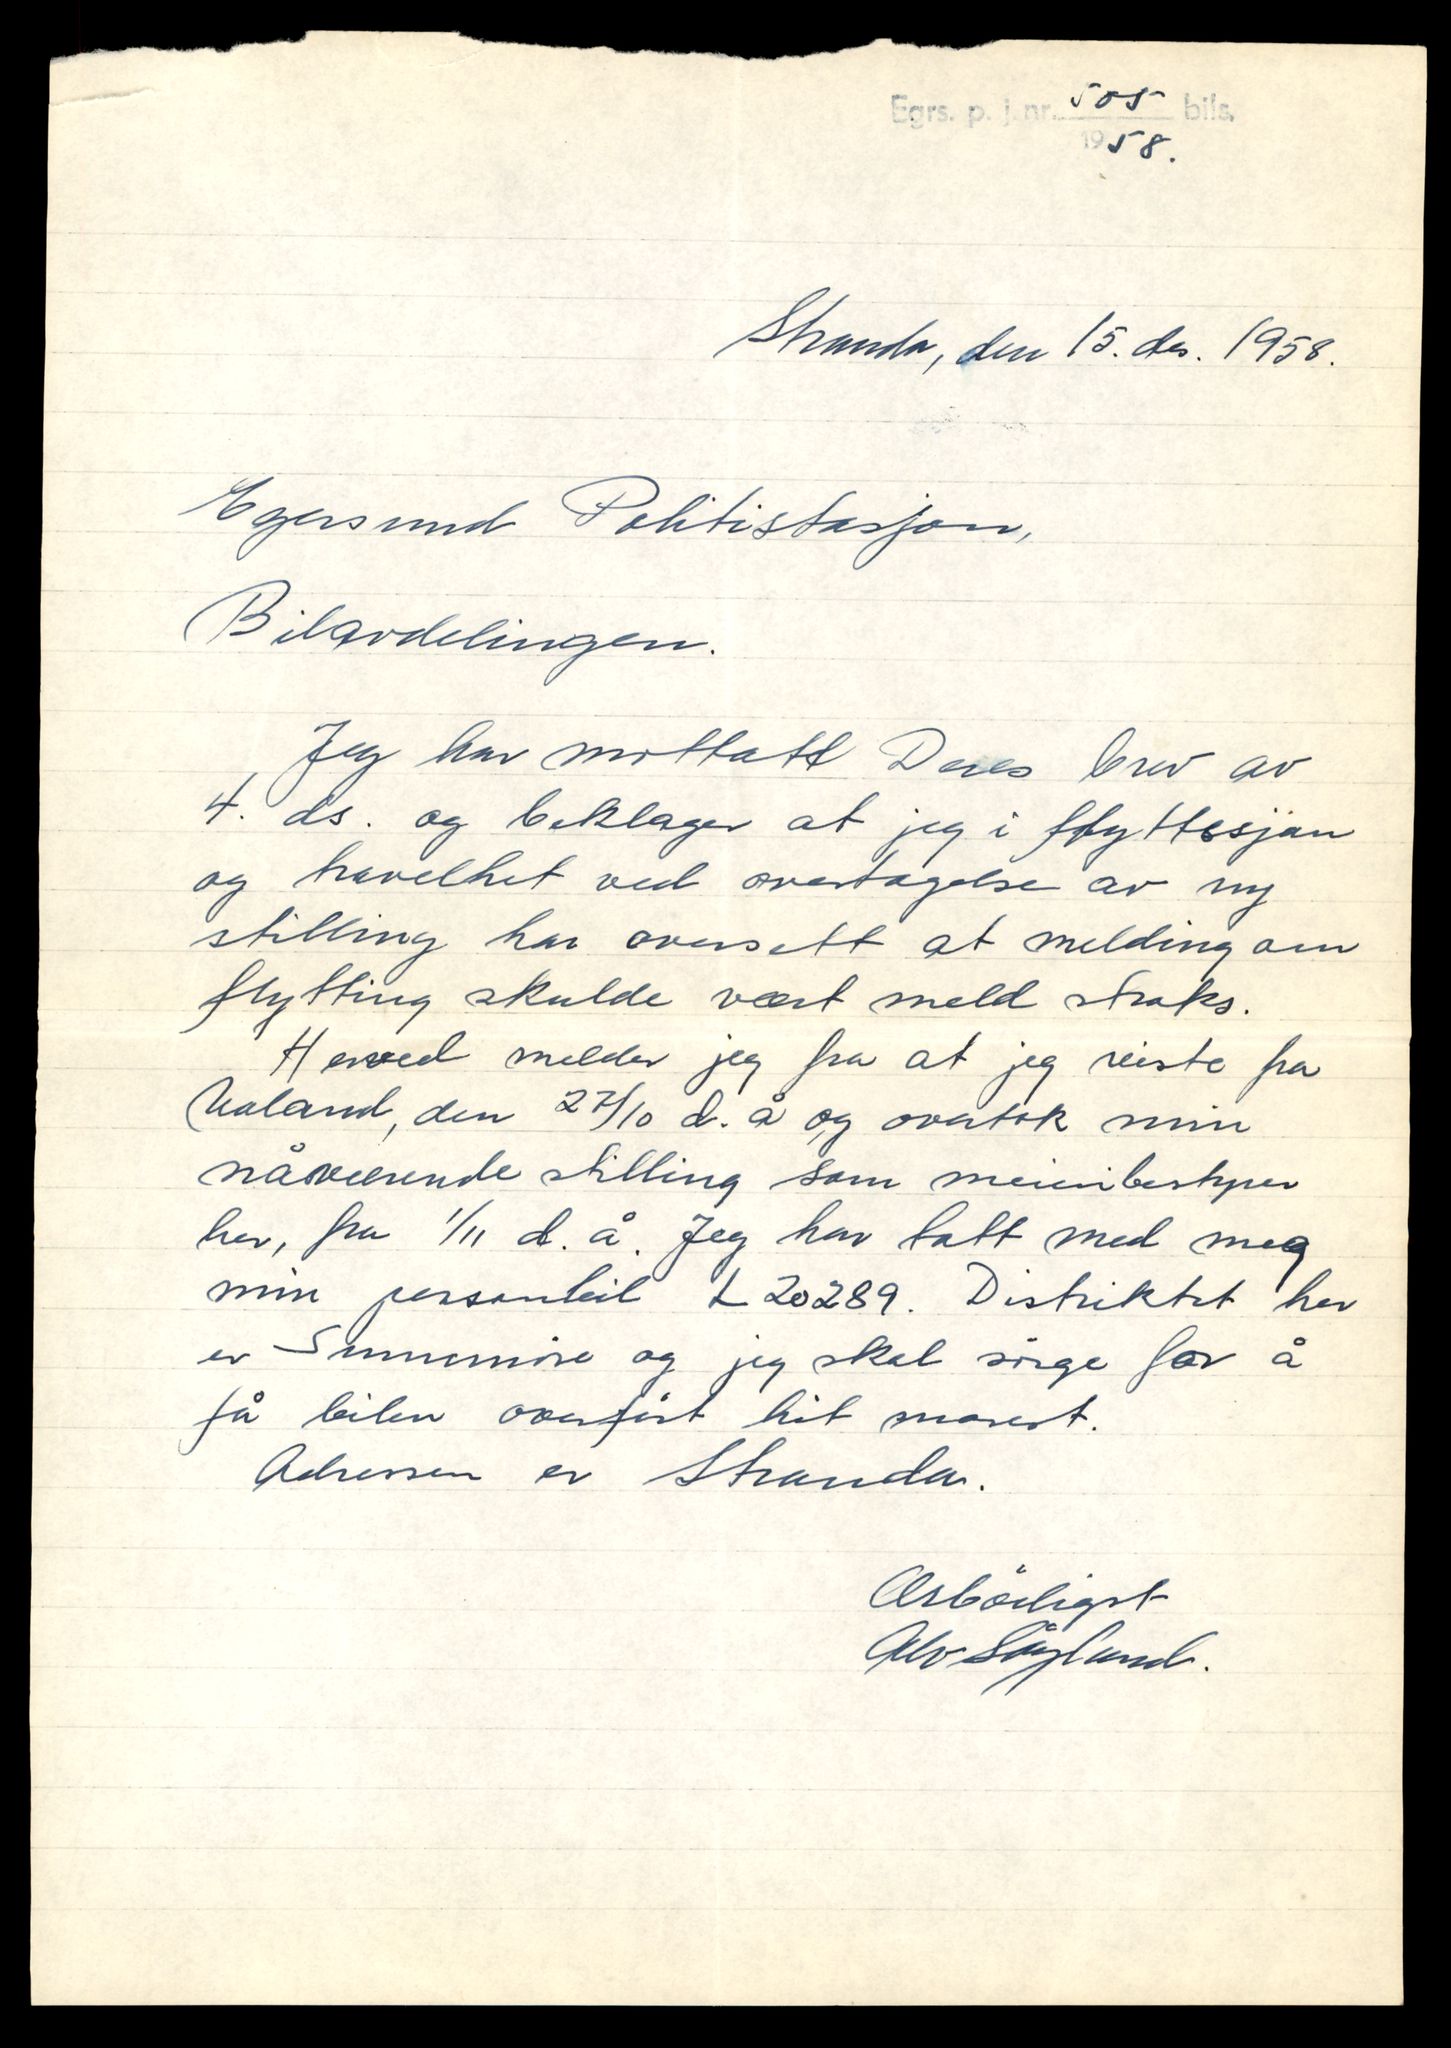 Egrs. p. j. nr. 505 bils.
1958.
Stranda, den 15. des. 1958.
Egersund Politistasjon,
Bilavdelingen.
Jeg har mottatt Deres brev av
4. ds. og beklager at jeg i flyttesjau
og travelhet ved overtagelse av ny
stilling har oversett at melding om
flytting skulde vært meld straks.
Herved melder jeg fra at jeg reiste fra
Ualand, den 27/10 d. å og overtok min
nåværende stilling som meieribestyrer
her, fra 1/11 d. å. Jeg har tatt med meg
min personbil L 20289. Distriktet her
er Sunnmöre og jeg skal sörge for å
få bilen overfört hit snarest.
Adressen er Stranda.
Ærbödigst
Alv